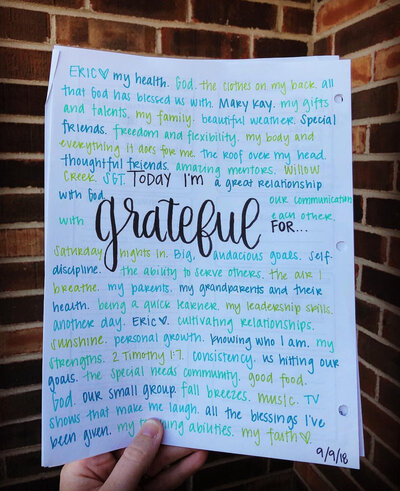 ERIC♡ my health. God. the clothes on my back. all
that God has blessed us with. MARY KAY. my gifts
and talents. my family. beautiful weather. Special
friends. freedom and flexibility. my body and
everything it does for me. the roof over my head.
thoughtful friends. amazing mentors. WILLOW
CREEK. SGT. TODAY I'M a great relationship
with God. our communication
with grateful each other.
FOR...
Saturday nights in. Big, audacious goals. self-
discipline. the ability to serve others. the air I
breathe. my parents. my grandparents and their
health. being a quick learner. my leadership skills.
another day. ERIC♡. cultivating relationships.
sunshine. personal growth. knowing who I am. my
strengths. 2 Timothy 1:7. consistency. us hitting our
goals. the special needs community. good food.
God. our small group. fall breezes. music. TV
shows that make me laugh. all the blessings I've
been given. my abilities. my faith♡.
9/9/18